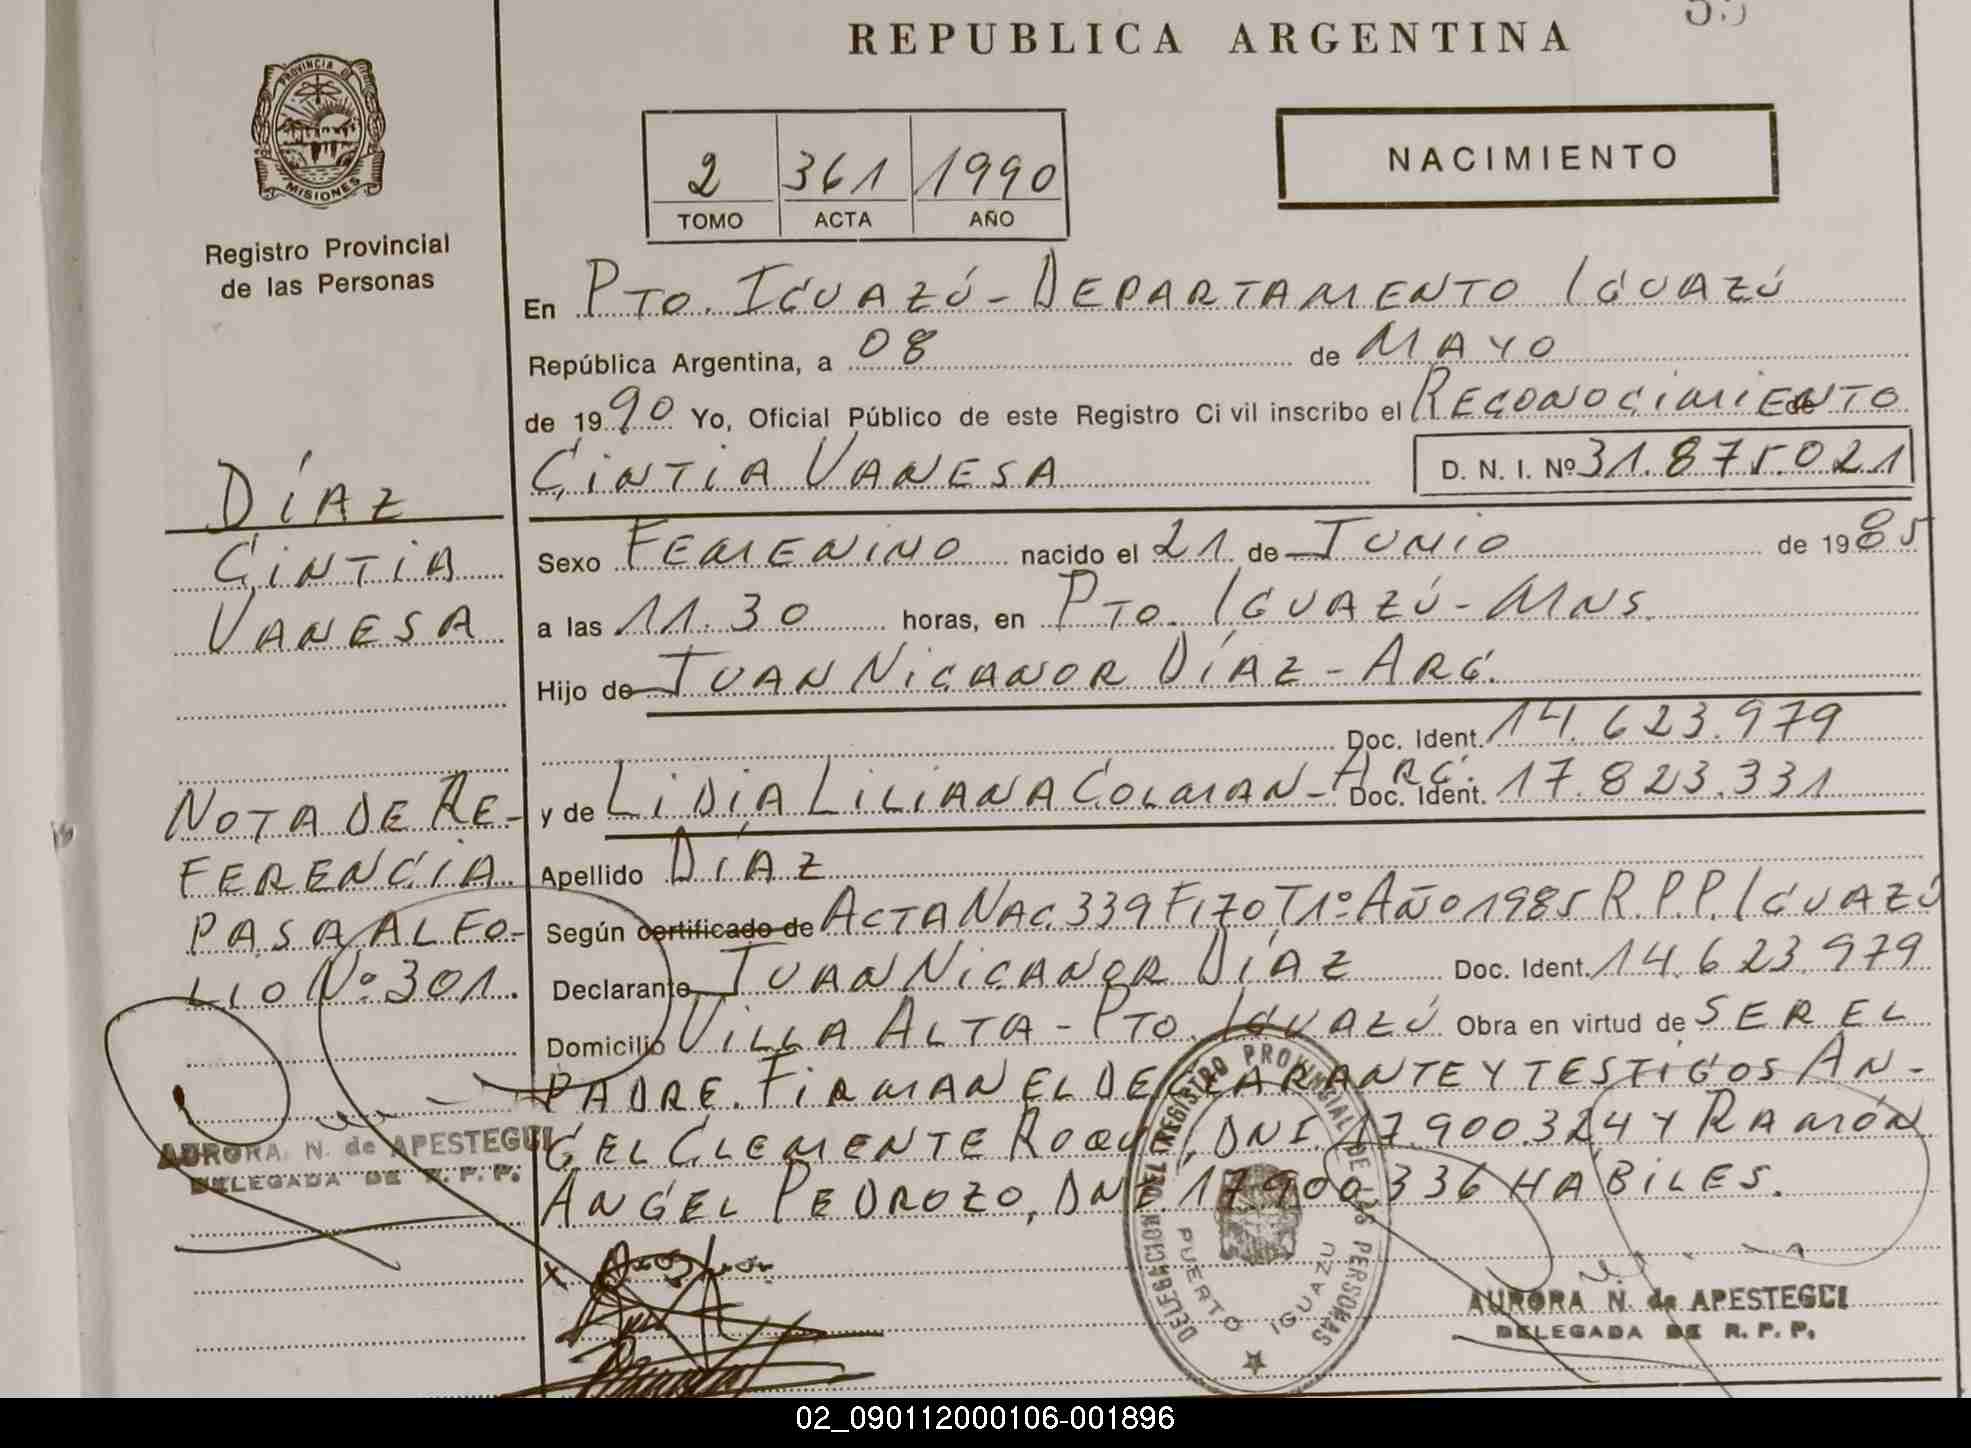 REPUBLICA ARGENTINA
PROVINCIA DE
MISIONES
Registro Provincial
de las Personas
2 361 1990
TOMO ACTA AÑO
NACIMIENTO
En PTO. IGUAZÚ - DEPARTAMENTO IGUAZÚ
República Argentina, a 08 de MAYO
de 1990 Yo, Oficial Público de este Registro Civil inscribo el RECONOCIMIENTO de
CINTIA VANESA D. N. I. Nº 31.875.021
DÍAZ
CINTIA
VANESA
Sexo FEMENINO nacido el 21 de JUNIO de 1985
a las 11.30 horas, en PTO. IGUAZÚ - MNS.
Hijo de JUAN NICANOR DÍAZ - ARG.
Doc. Ident. 14.623.979
y de LIDIA LILIANA COLMAN - ARG. Doc. Ident. 17.823.331
Apellido DÍAZ
Según certificado de ACTA NAC. 339 F170 T1º AÑO 1985 R.P.P. IGUAZÚ
Declarante JUAN NICANOR DÍAZ Doc. Ident. 14.623.979
Domicilio VILLA ALTA - PTO. IGUAZÚ Obra en virtud de SER EL
PADRE. FIRMAN EL DECLARANTE Y TESTIGOS AN-
GEL CLEMENTE DNI. 17.900.324 Y RAMÓN
ANGEL PEDROZO, DNI. 17.900.336 HABILES.
NOTA DE RE-
FERENCIA
PASA AL FO-
LIO Nº 301.
AURORA N. de APESTEGUI
DELEGADA DE R. P. P.
DELEGACION DEL REGISTRO PROVINCIAL DE LAS PERSONAS
PUERTO IGUAZU
AURORA N. de APESTEGUI
DELEGADA DE R. P. P.
02_090112000106-001896